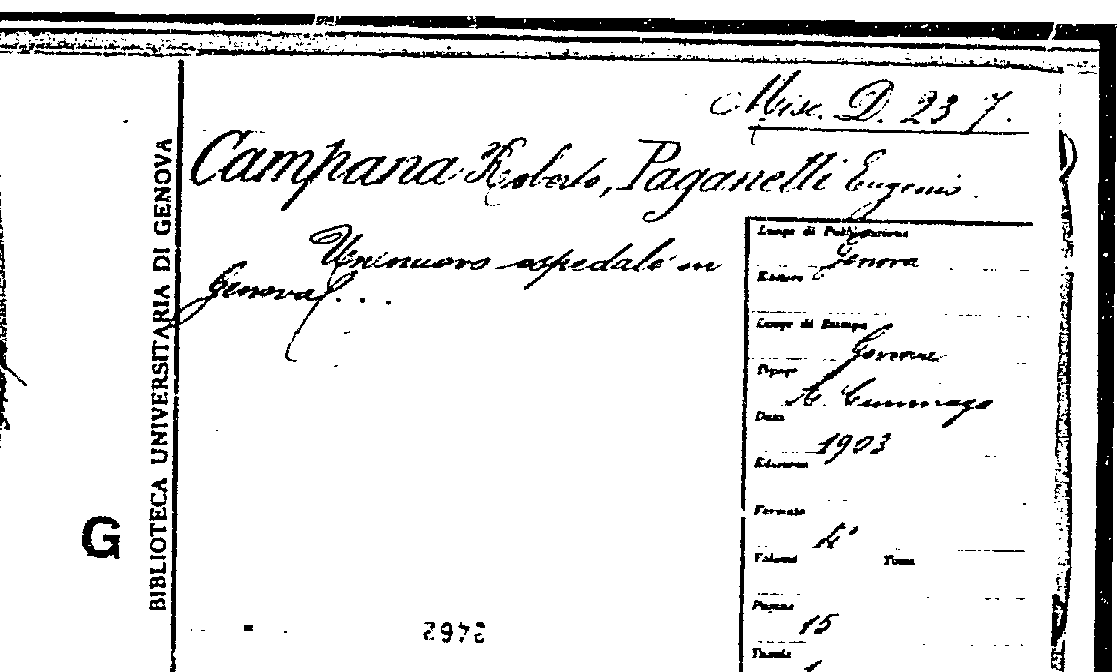 Misc. D. 23 7.
Campana Roberto, Paganelli Eugenio.
Un nuovo ospedale in
Genova...
Luogo di Pubblicazione
Genova
Editore
Luogo di Stampa
Genova
Tipogr.
Data
1903
Edizione
Formato
4°
Volumi Tomi
Pagine
15
Tavole
BIBLIOTECA UNIVERSITARIA DI GENOVA
G